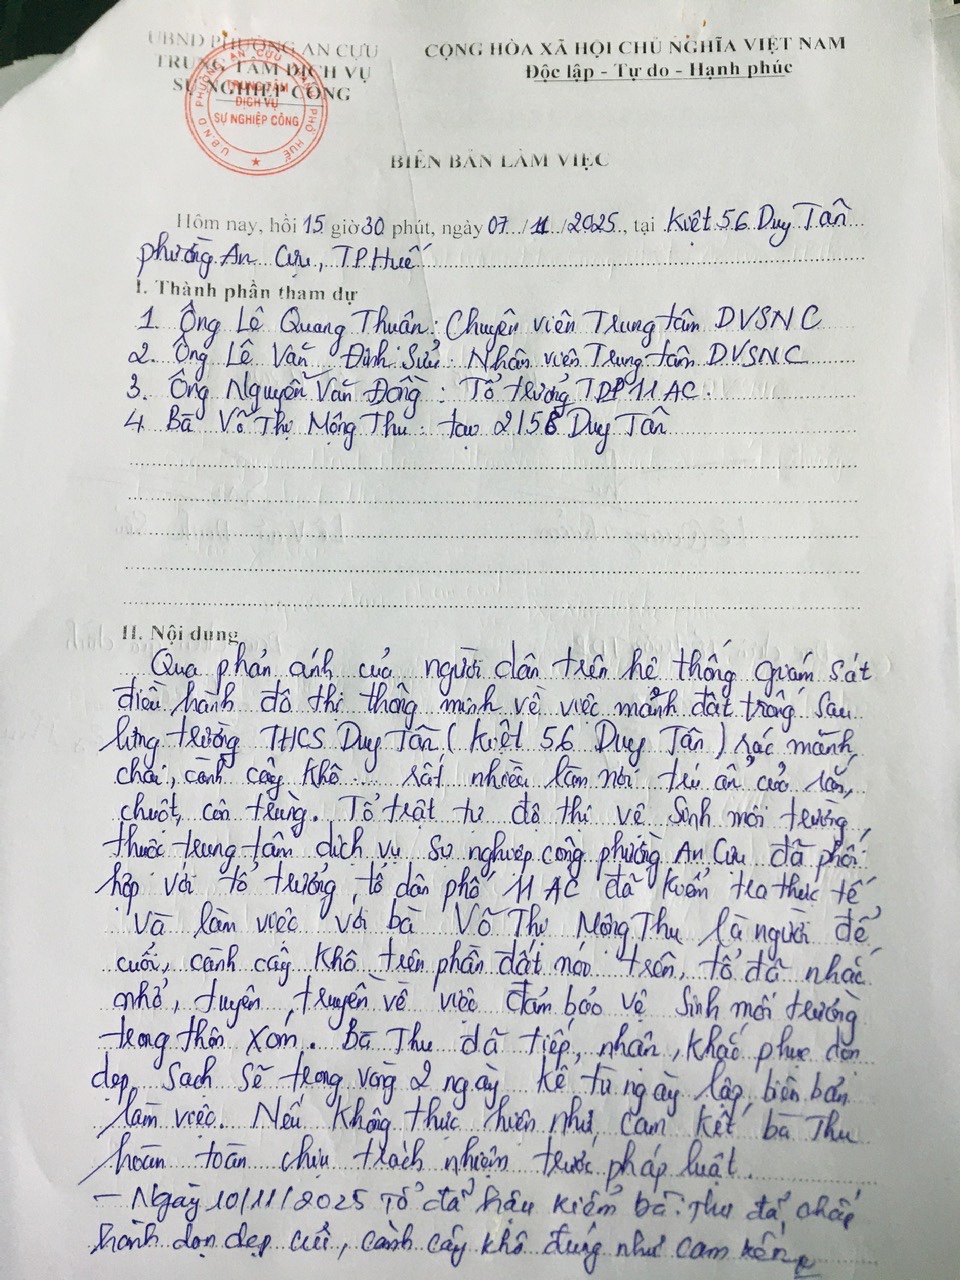 UBND PHƯỜNG AN CỰU
TRUNG TÂM DỊCH VỤ
SỰ NGHIỆP CÔNG
CỘNG HÒA XÃ HỘI CHỦ NGHĨA VIỆT NAM
Độc lập - Tự do - Hạnh phúc
U.B.N.D PHƯỜNG AN CỰU PHỐ HUẾ
TRUNG TÂM
DỊCH VỤ
SỰ NGHIỆP CÔNG
BIÊN BẢN LÀM VIỆC
Hôm nay, hồi 15 giờ 30 phút, ngày 07/11/2025, tại Kiệt 56 Duy Tân
phường An Cựu, TP Huế
I. Thành phần tham dự
1. Ông Lê Quang Thuân: Chuyên viên Trung tâm DVSNC
2. Ông Lê Văn Đình Sửu: Nhân viên Trung tâm DVSNC
3. Ông Nguyễn Văn Đồng: Tổ trưởng TDP 11 AC.
4. Bà Võ Thị Mộng Thu: tại 2/56 Duy Tân
II. Nội dung
Qua phản ánh của người dân trên hệ thống giám sát
điều hành đô thị thông minh về việc mảnh đất trống sau
lưng trường THCS Duy Tân (Kiệt 56 Duy Tân) rác mảnh
chai, cành cây khô rất nhiều làm nơi trú ẩn của rắn,
chuột, côn trùng. Tổ trật tự đô thị vệ sinh môi trường,
thuộc trung tâm dịch vụ sự nghiệp công phường An Cựu đã phối
hợp với tổ trưởng tổ dân phố 11 AC đã kiểm tra thực tế
và làm việc với bà Võ Thị Mộng Thu là người để
cuối, cành cây khô trên phần đất nói trên, tổ đã nhắc
nhở, tuyên truyền về việc đảm bảo vệ sinh môi trường
trong thôn xóm. Bà Thu đã tiếp nhận, khắc phục dọn
dẹp sạch sẽ trong vòng 2 ngày kể từ ngày lập biên bản
làm việc. Nếu không thực hiện như cam kết bà Thu
hoàn toàn chịu trách nhiệm trước pháp luật.
- Ngày 10/11/2025 Tổ đã hậu kiểm bà Thu đã chấp
hành dọn dẹp củi, cành cây khô đúng như cam kết